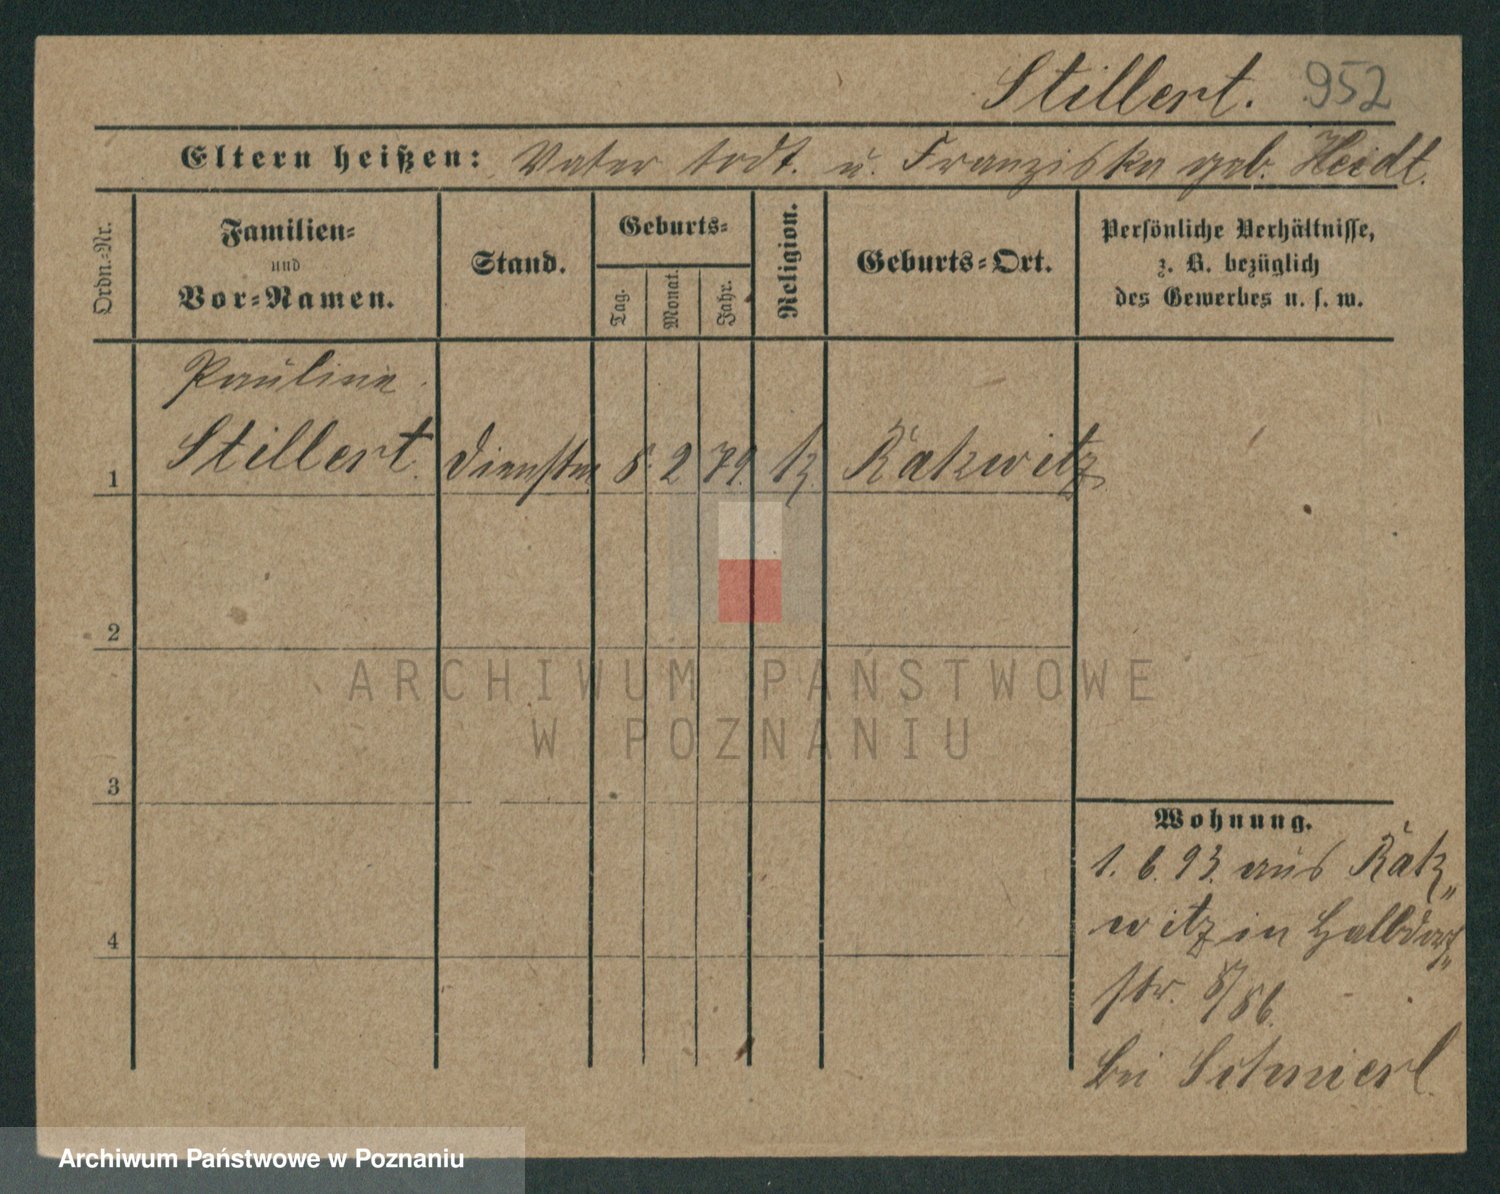 Stillert. 952
Eltern heißen: Vater todt. u. Franziska geb. Heidt.
Ordn.-Nr.
Familien-
und
Vor-Namen.
Stand.
Geburts-
Tag.
Monat.
Jahr.
Religion.
Geburts-Ort.
Persönliche Verhältnisse,
z. B. bezüglich
des Gewerbes u. s. w.
Pauline
1 Stillert Dienstm 8. 2 79. k. Rakwitz
2
ARCHIWUM PAŃSTWOWE
W POZNANIU
3
Wohnung.
1. 6. 93. aus Rak„
witz in Halbdorf„
4
str. 8/86.
bei Schmierl
Archiwum Państwowe w Poznaniu